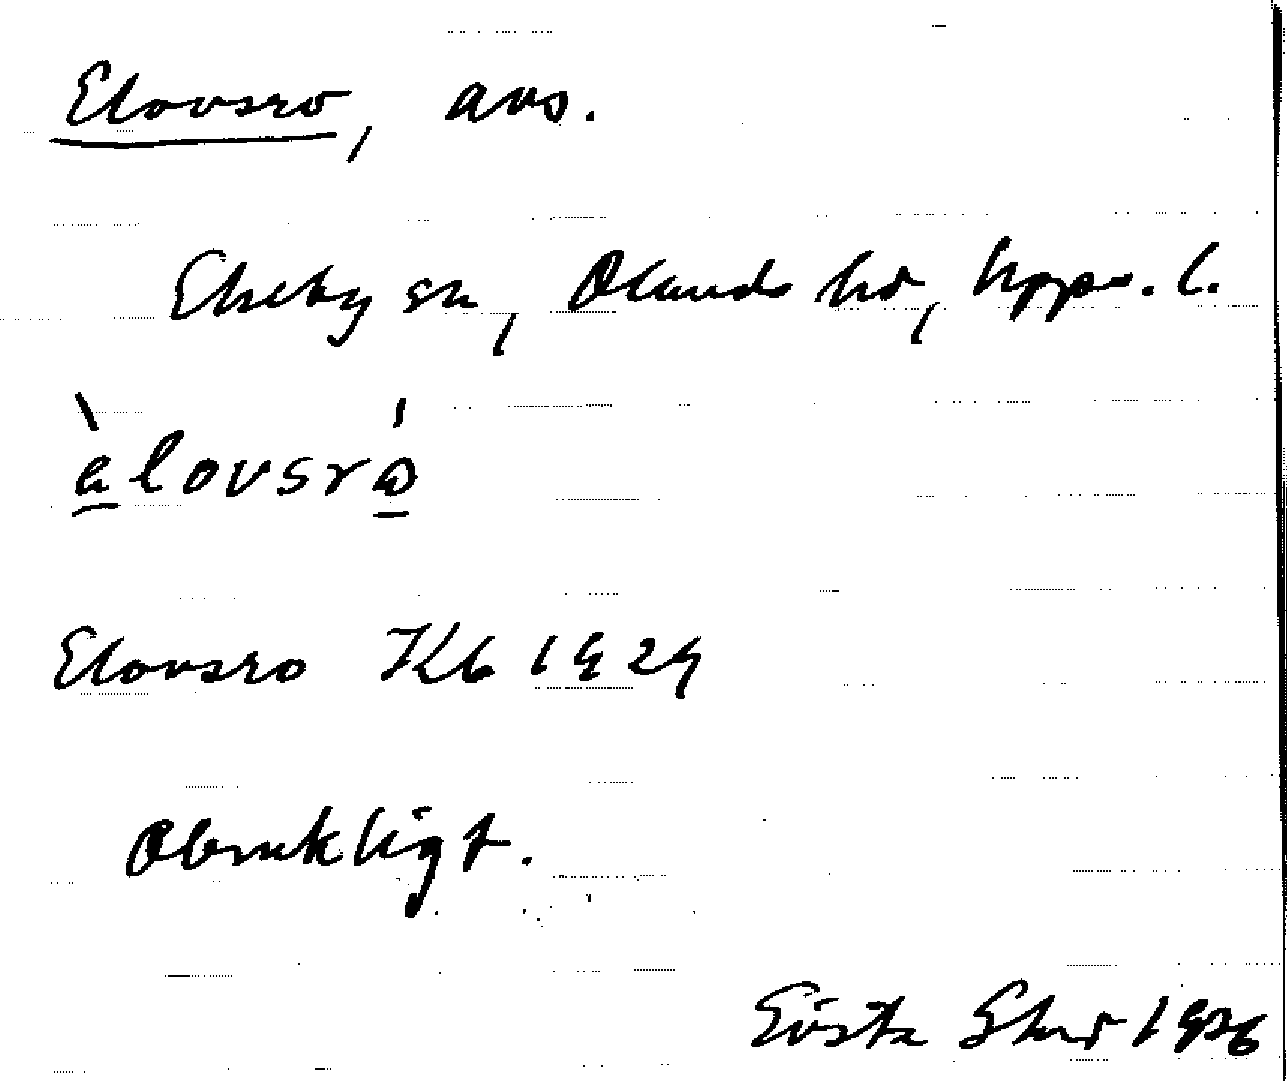 Elovsro, avs.
Ekeby sn, Olands hd, Upps. l.
èlovsró
Elovsro Kb 1929
Obrukligt.
Gösta 1936